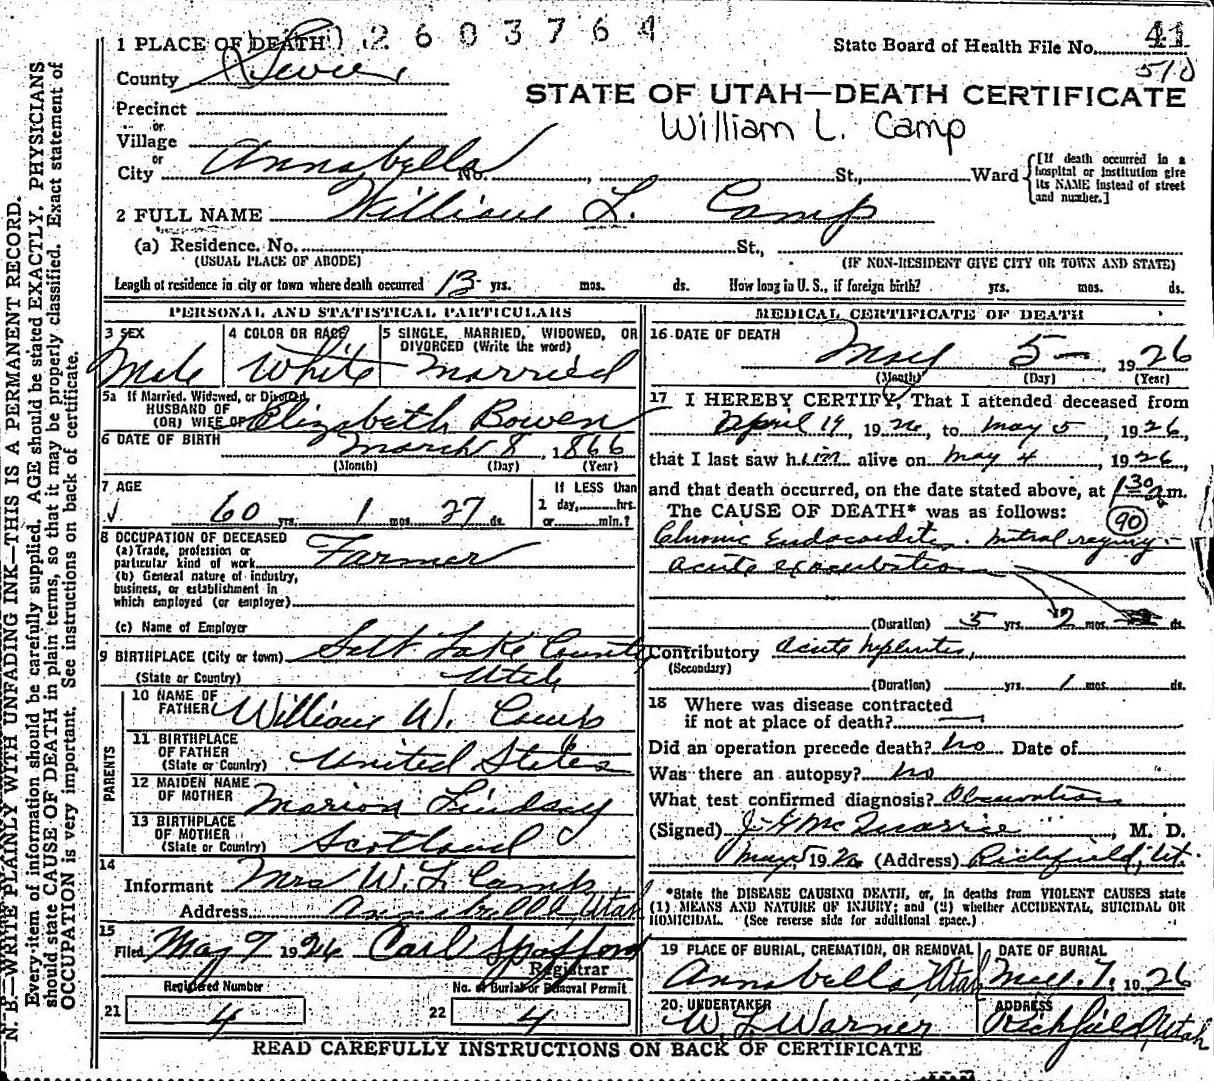 2603764
1 PLACE OF DEATH
State Board of Health File No. 41
510
County Sevier
STATE OF UTAH—DEATH CERTIFICATE
William L. Camp
Precinct
or
Village
or
City Annabella No. St., Ward
[If death occurred in a hospital or institution give its NAME instead of street and number.]
2 FULL NAME William L. Camp
(a) Residence. No. St.,
(USUAL PLACE OF ABODE) (IF NON-RESIDENT GIVE CITY OR TOWN AND STATE)
Length of residence in city or town where death occurred 13 yrs. mos. ds. How long in U. S., if foreign birth? yrs. mos. ds.
PERSONAL AND STATISTICAL PARTICULARS
3 SEX
Male
4 COLOR OR RACE
White
5 SINGLE, MARRIED, WIDOWED, OR
DIVORCED (Write the word)
Married
5a If Married, Widowed, or Divorced
HUSBAND OF
(OR) WIFE OF Elizabeth Bowen
6 DATE OF BIRTH March 8, 1866
(Month) (Day) (Year)
7 AGE
60 yrs. 1 mos. 27 ds.
If LESS than
1 day,......hrs.
or......min.?
8 OCCUPATION OF DECEASED
(a) Trade, profession or
particular kind of work Farmer
(b) General nature of industry,
business, or establishment in
which employed (or employer)
(c) Name of Employer
9 BIRTHPLACE (City or town) Salt Lake County
(State or Country) Utah
PARENTS
10 NAME OF
FATHER William W. Camp
11 BIRTHPLACE
OF FATHER
(State or Country) United States
12 MAIDEN NAME
OF MOTHER Marion Lindsay
13 BIRTHPLACE
OF MOTHER
(State or Country) Scotland
14
Informant Mrs W. L. Camp
Address Annabella, Utah
15
Filed May 7 1926 Carl Spafford
Registrar
Registered Number
21 4
No. of Burial or Removal Permit
22 4
MEDICAL CERTIFICATE OF DEATH
16 DATE OF DEATH
May 5— 1926
(Month) (Day) (Year)
17 I HEREBY CERTIFY, That I attended deceased from
April 19, 1926, to May 5, 1926,
that I last saw him alive on May 4, 1926,
and that death occurred, on the date stated above, at 1 30 a.m.
The CAUSE OF DEATH* was as follows:
90
Chronic Endocarditis. Mitral regurg.
acute exacerbation
(Duration) 5 yrs. 2 mos. ds.
Contributory Acute Nephritis,
(Secondary)
(Duration) yrs. 1 mos. ds.
18 Where was disease contracted
if not at place of death? —
Did an operation precede death? No Date of
Was there an autopsy? No "
What test confirmed diagnosis? Observation
(Signed) J. G. McQuarrie, M. D.
May 5 1926 (Address) Richfield, Ut.
*State the DISEASE CAUSING DEATH, or, in deaths from VIOLENT CAUSES state
(1) MEANS AND NATURE OF INJURY; and (2) whether ACCIDENTAL, SUICIDAL OR
HOMICIDAL. (See reverse side for additional space.)
19 PLACE OF BURIAL, CREMATION, OR REMOVAL
Annabella, Utah
DATE OF BURIAL
May 7, 1926
20. UNDERTAKER
W. L. Warner
ADDRESS
Richfield, Utah
READ CAREFULLY INSTRUCTIONS ON BACK OF CERTIFICATE
N. B.—WRITE PLAINLY WITH UNFADING INK—THIS IS A PERMANENT RECORD.
Every item of information should be carefully supplied. AGE should be stated EXACTLY. PHYSICIANS
should state CAUSE OF DEATH in plain terms, so that it may be properly classified. Exact statement of
OCCUPATION is very important. See instructions on back of certificate.